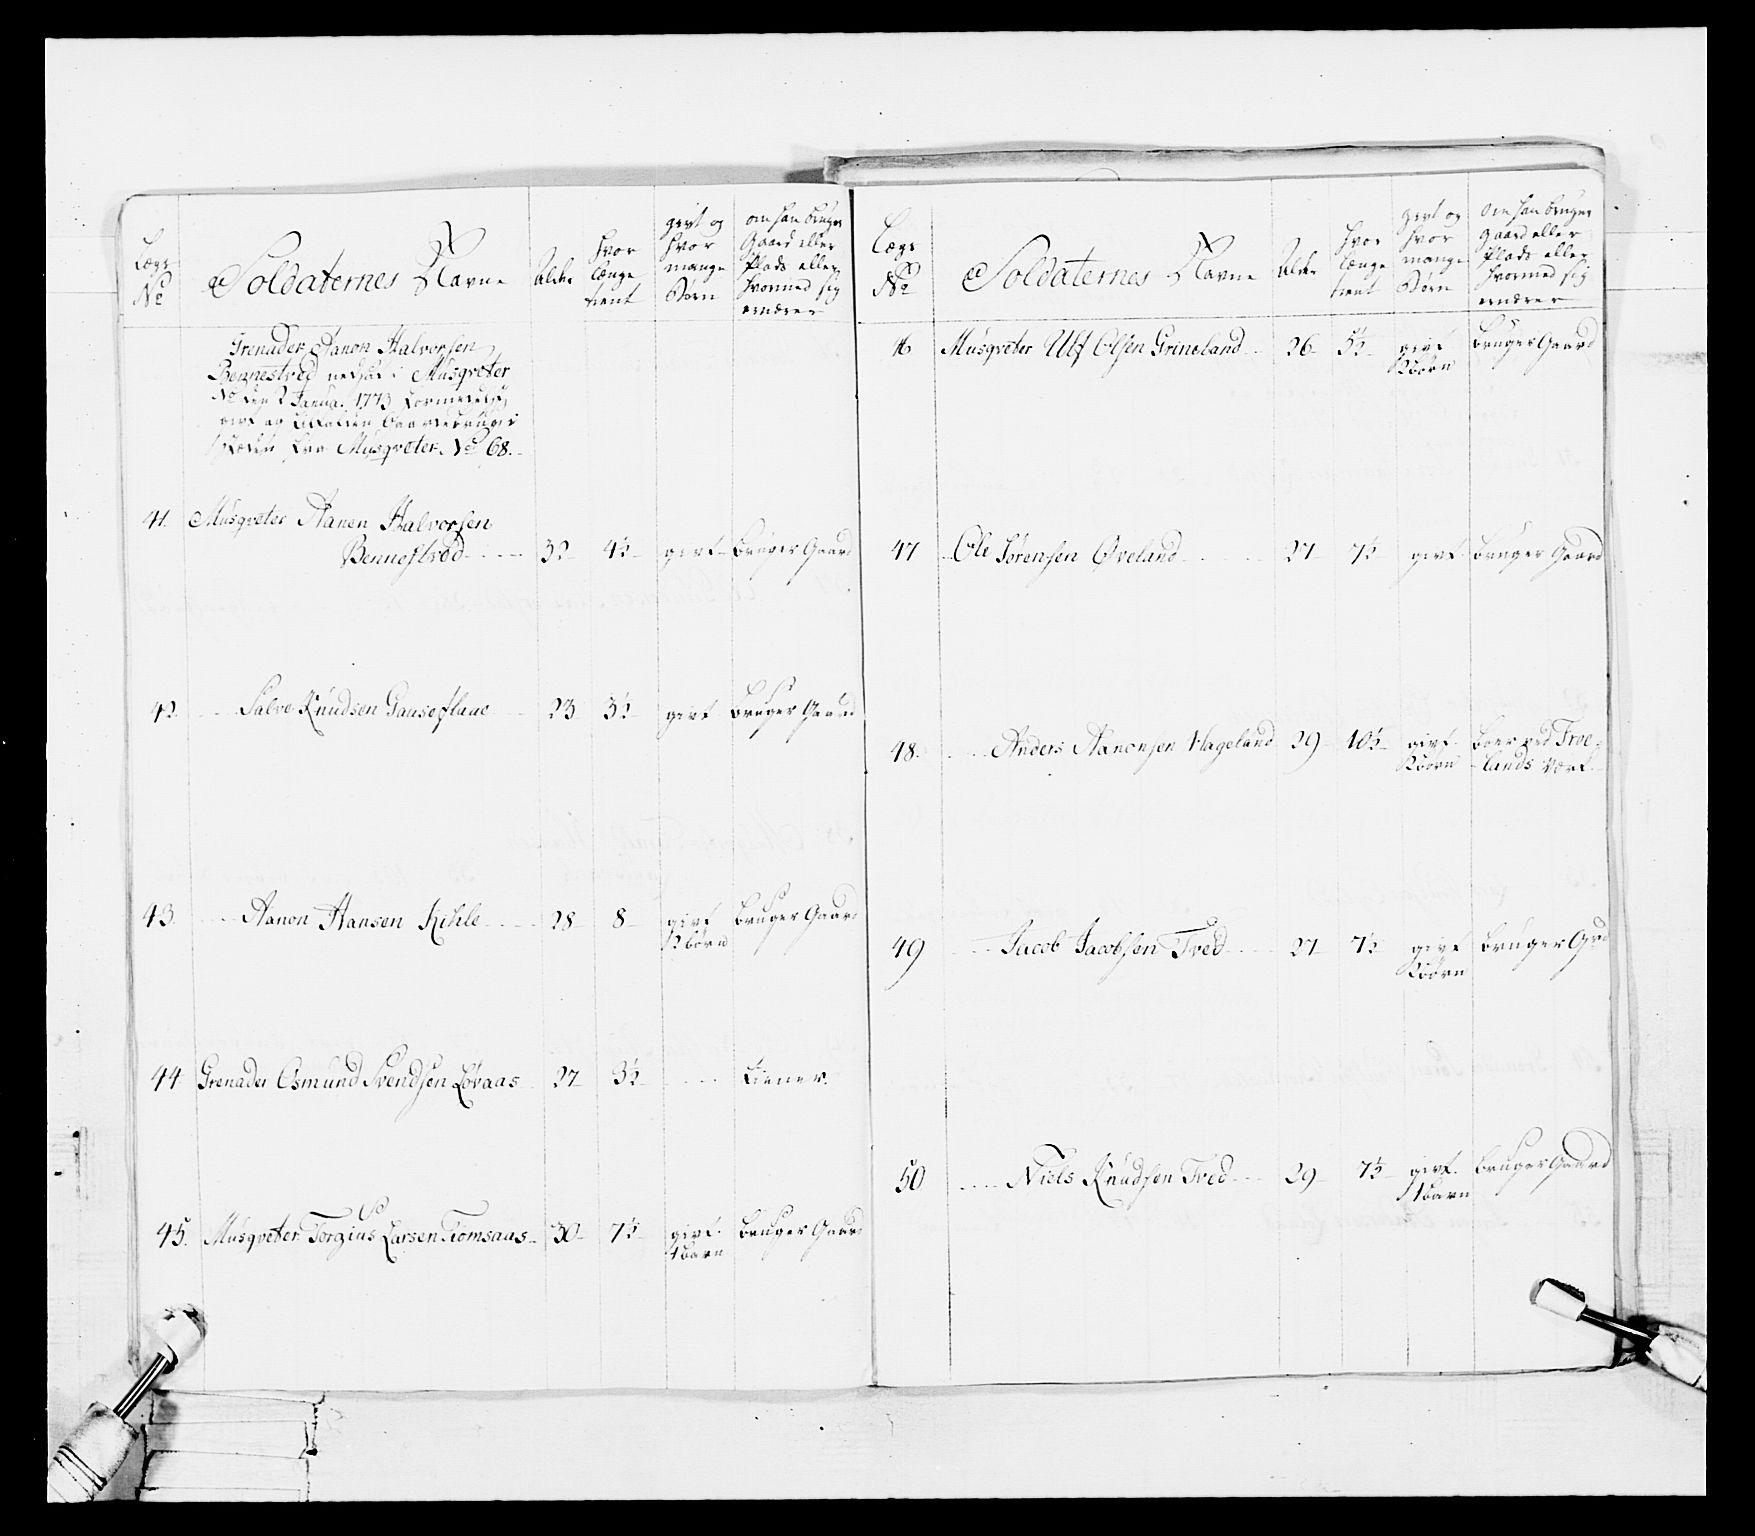 Lægs
No
Soldaternes Navne
Alder
hvor
længe
tient
givt og
hvor
mange
Börn
om han bruger
Gaard eller
Plads eller
hvormed sig
ernærer
Grenader Aanon Halvorsen
Bennestved nedsat i Musqveter
No den 2 Janua. 1773
givt og
fra Musqveter No 68.
41. Musqveter Aanen Halvorsen
Bennestved 32 4½ givt bruger Gaard
42. Salve Knudsen Gauseflaae 23 3½ givt bruger Gaard
43. Aanon Hansen Kihle 28 8 givt bruger Gaard
2 börn
44 Grenader Osmund Svendsen Løvaas 27 3½ tiener.
45. Musqveter Torgius Larsen Tomsaas 30 7½ givt. bruger Gaard
1 barn
Lægs
No
Soldaternes Navne
Alder
hvor
længe
tient
givt og
hvor
mange
Börn
om han bruger
gaard eller
Plads eller
hvormed sig
ernærer
46 Musqveter Ulf Olsen Grineland 26 5½ givt bruger Gaard
2 börn
47 Ole Sørensen Øveland 27 7½ givt bruger Gaard
48. Anders Aanonsen Hageland 29 10½ givt. boer ved Froe-
2 börn lands Værk
49 Jacob Jacobsen Tved 27 7½ givt bruger Grd
2 börn
50 Niels Knudsen Tved 29 7½ givt. bruger Gaard
1 barn